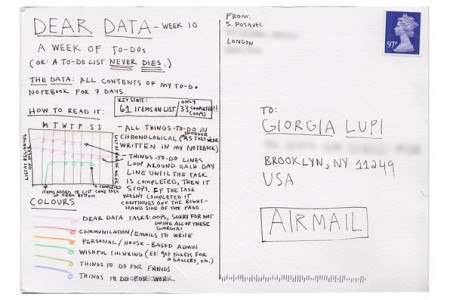 DEAR DATA - WEEK 10
A WEEK OF TO-DOS
(OR: A TO-DO LIST NEVER DIES.)
THE DATA: ALL CONTENTS OF MY TO-DO
NOTEBOOK FOR 7 DAYS.
HOW TO READ IT:
KEY STATS:
61 ITEMS ON LIST
ONLY
33 COMPLETED!!
(OOPS)
M T W T F S S
- ALL THINGS-TO-DO IN
CHRONOLOGICAL (AS THEY WERE
WRITTEN IN MY NOTEBOOK)
- THINGS-TO-DO LINES
LOOP AROUND EACH DAY
LINE UNTIL THE TASK
IS COMPLETED, THEN IT
STOPS. IF THE TASK
WASN'T COMPLETED IT
CONTINUES OUT THE RIGHT-
HAND SIDE OF THE PAGE.
COLOURS
DEAR DATA TASKS: OOPS, SORRY FOR NOT
DOING ALL OF THESE
GIORGIA!
COMMUNICATION/EMAILS TO WRITE
PERSONAL/HOUSE-BASED ADMIN
WISHFUL THINKING (EX: GET TICKETS FOR
A GALLERY, ETC.)
THINGS TO DO FOR FRIENDS
THINGS TO DO FOR WORK
FROM:
S. POSAVEC
LONDON
97P
TO:
GIORGIA LUPI
BROOKLYN, NY 11249
USA
AIRMAIL